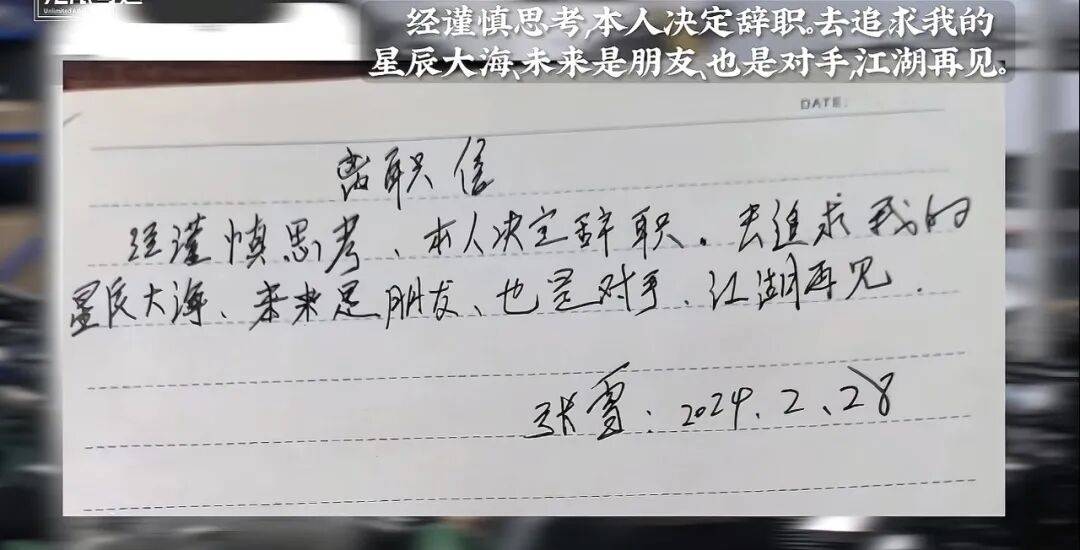 经谨慎思考,本人决定辞职。去追求我的
星辰大海、未来是朋友、也是对手,江湖再见。
DATE:
离职信
经谨慎思考、本人决定辞职。去追求我的
星辰大海、未来是朋友、也是对手、江湖再见.
张雪:2024.2.28